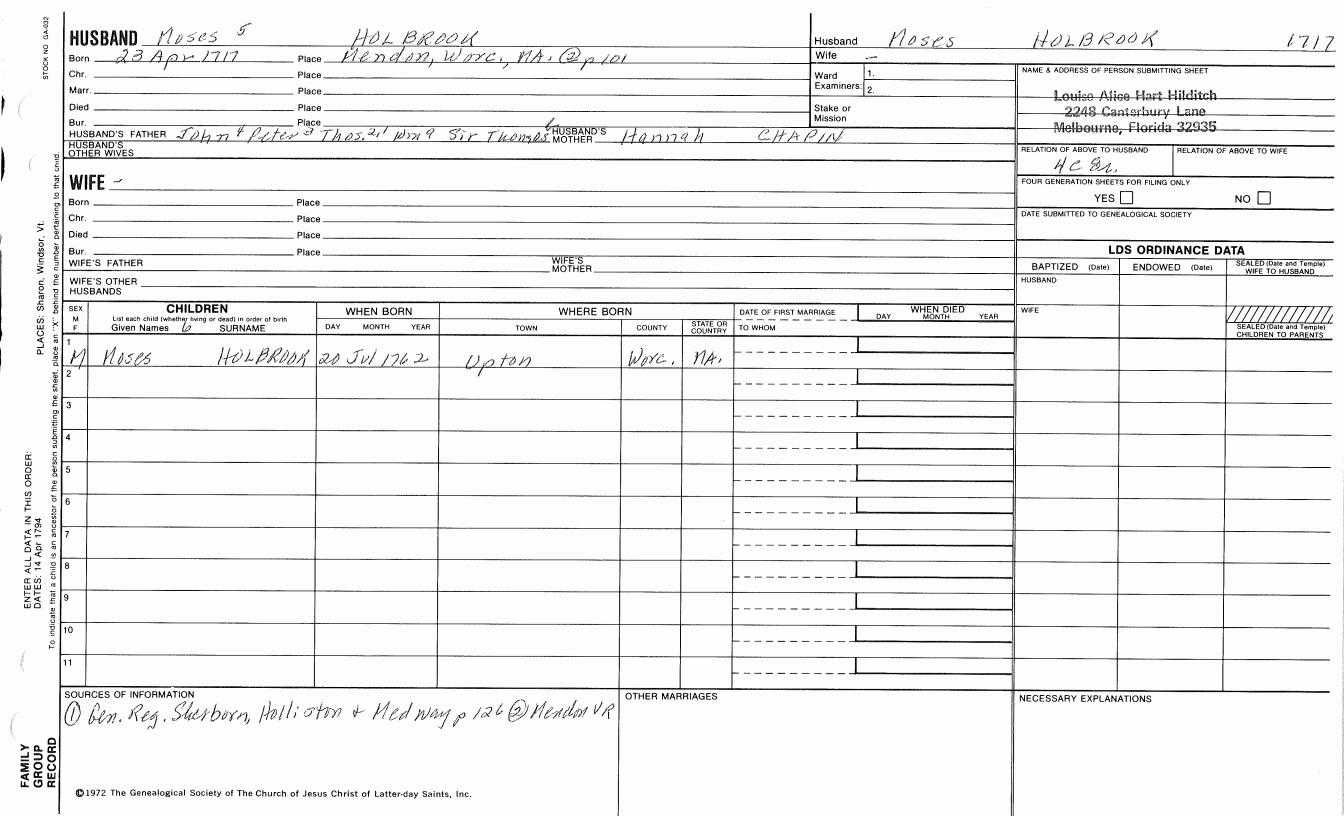 STOCK NO. GA-032
HUSBAND Moses 5 HOLBROOK
Born 23 Apr 1717 Place Mendon, Worc., MA. ② p 101
Chr. Place
Marr. Place
Died Place
Bur. Place
HUSBAND'S FATHER John 4 Peter 3 Thos. 2 1 Wm 9 Sir Thomas HUSBAND'S MOTHER Hannah CHAPIN
HUSBAND'S OTHER WIVES
WIFE –
Born Place
Chr. Place
Died Place
Bur. Place
WIFE'S FATHER WIFE'S MOTHER
WIFE'S OTHER HUSBANDS
Husband Moses HOLBROOK 1717
Wife –
Ward Examiners: 1. 2.
Stake or Mission
NAME & ADDRESS OF PERSON SUBMITTING SHEET
Louise Alice Hart Hilditch
2248 Canterbury Lane
Melbourne, Florida 32935
RELATION OF ABOVE TO HUSBAND RELATION OF ABOVE TO WIFE
4 C
FOUR GENERATION SHEETS FOR FILING ONLY
YES NO
DATE SUBMITTED TO GENEALOGICAL SOCIETY
LDS ORDINANCE DATA
BAPTIZED (Date) ENDOWED (Date) SEALED (Date and Temple) WIFE TO HUSBAND
HUSBAND
WIFE
SEALED (Date and Temple) CHILDREN TO PARENTS
SEX M F
CHILDREN
List each child (whether living or dead) in order of birth
Given Names 6 SURNAME
WHEN BORN
DAY MONTH YEAR
WHERE BORN
TOWN COUNTY STATE OR COUNTRY
DATE OF FIRST MARRIAGE
TO WHOM
WHEN DIED
DAY MONTH YEAR
1 M Moses HOLBROOK 20 Jul 1762 Upton Worc. MA.
2
3
4
5
6
7
8
9
10
11
SOURCES OF INFORMATION
① Gen. Reg. Sherborn, Holliston & Medway p 126 ② Mendon VR
OTHER MARRIAGES
NECESSARY EXPLANATIONS
©1972 The Genealogical Society of The Church of Jesus Christ of Latter-day Saints, Inc.
FAMILY
GROUP
RECORD
ENTER ALL DATA IN THIS ORDER:
DATES: 14 Apr 1794 PLACES: Sharon, Windsor, Vt.
To indicate that a child is an ancestor of the person submitting the sheet, place an "X" behind the number pertaining to that child